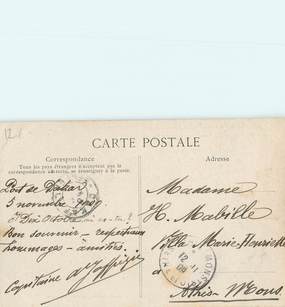 CARTE POSTALE
Correspondance
Tous les pays étrangers n'acceptent pas la
correspondance au recto, se renseigner à la poste.
Adresse
Port de Dakar
3 novembre 1909
Bon souvenir - respectueux
hommages - amitiés.
Capitaine
Madame
H. Mabille
Villa Marie-Henriette
à
Athis-Mons